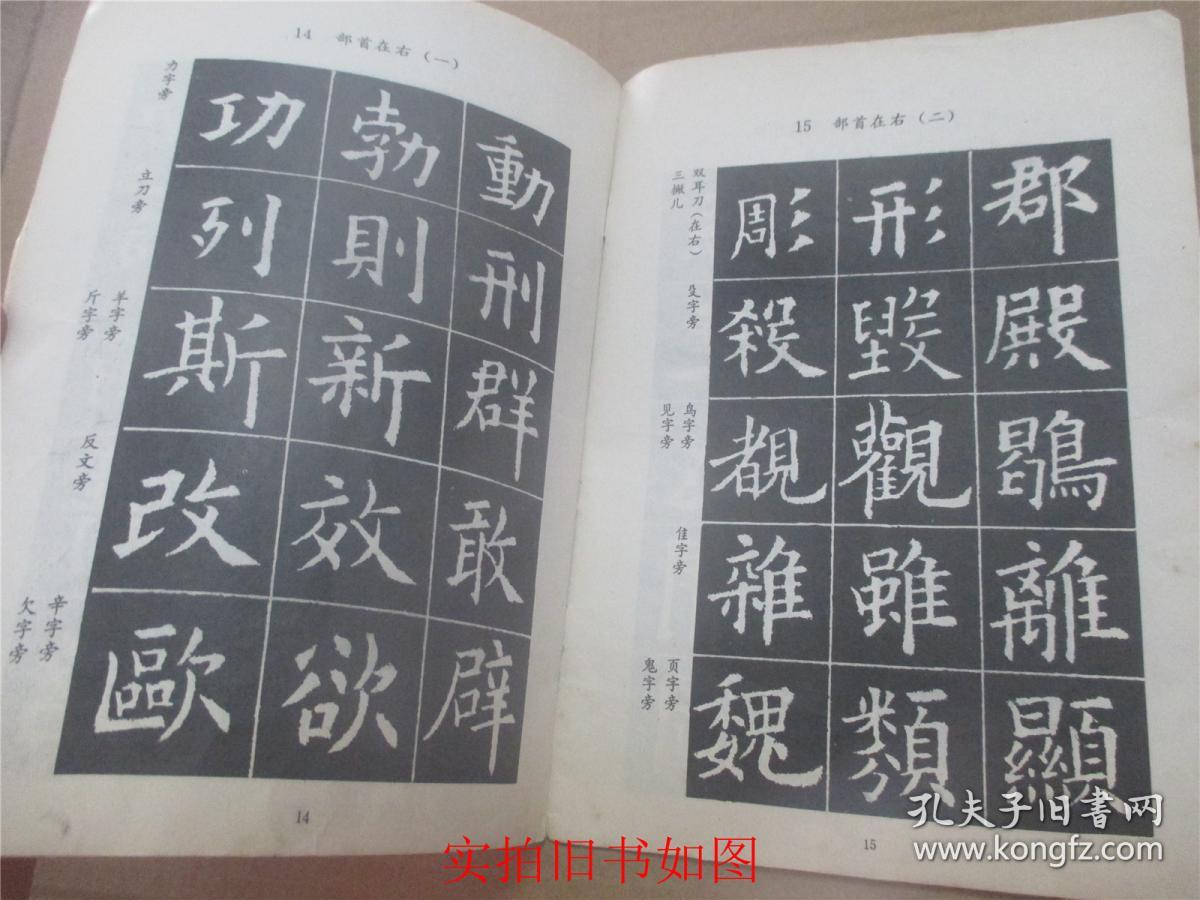 14 部首在右(一)
力字旁
立刀旁
羊字旁
斤字旁
反文旁
辛字旁
欠字旁
功 勃 動
列 則 刑
斯 新 群
改 效 敢
歐 欲 辟
14
15 部首在右(二)
双耳刀(在右)
三撇儿
殳字旁
鸟字旁
见字旁
隹字旁
页字旁
鬼字旁
彫 形 郡
殺 毀 殿
覩 觀 鶡
雜 雖 離
魏 類 顯
15
实拍旧书如图
孔夫子旧书网
www.kongfz.com